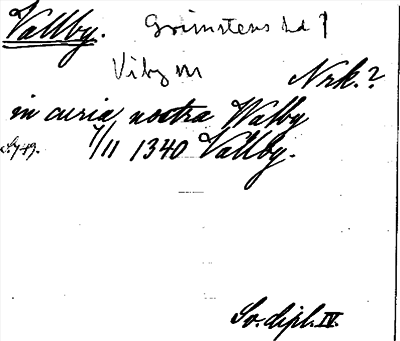 Vallby. Grimstens hd
Viby sn Nrk.?
in curia nostra Walby
7/11 1340 Vallby.
Sv. dipl. IV.